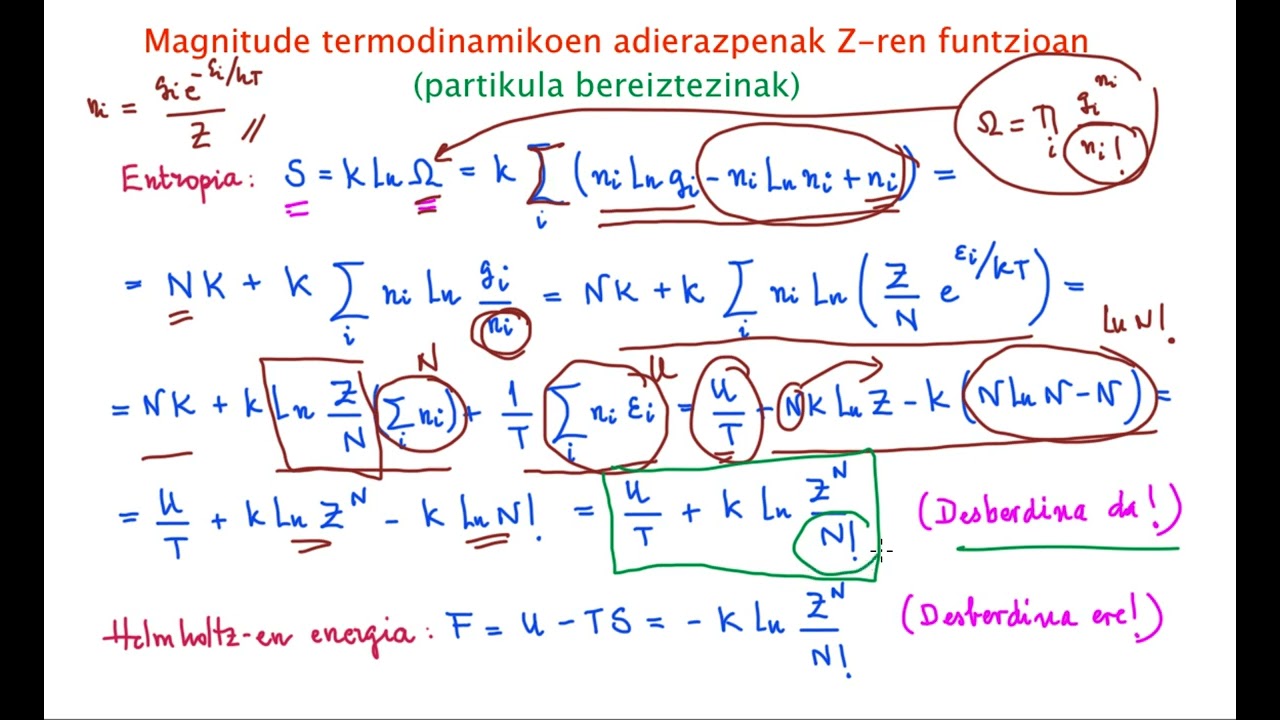 Magnitude termodinamikoen adierazpenak Z-ren funtzioan
(partikula bereiztezinak)
nᵢ = gᵢ e^(-εᵢ/kT) / Z //
Ω = Πᵢ gᵢ^nᵢ / nᵢ!
Entropia: S = k Ln Ω = k Σᵢ (nᵢ Ln gᵢ - nᵢ Ln nᵢ + nᵢ) =
= NK + k Σᵢ nᵢ Ln gᵢ/nᵢ = NK + k Σᵢ nᵢ Ln (Z/N e^(εᵢ/kT)) =
Ln N!
N U
= NK + k Ln Z/N (Σᵢ nᵢ) + 1/T Σᵢ nᵢ εᵢ = U/T - N k Ln Z - k (N Ln N - N) =
= U/T + k Ln Z^N - k Ln N! = U/T + k Ln Z^N/N! (Desberdina da!)
Helmholtz-en energia: F = U - TS = - k Ln Z^N/N! (Desberdina ere!)